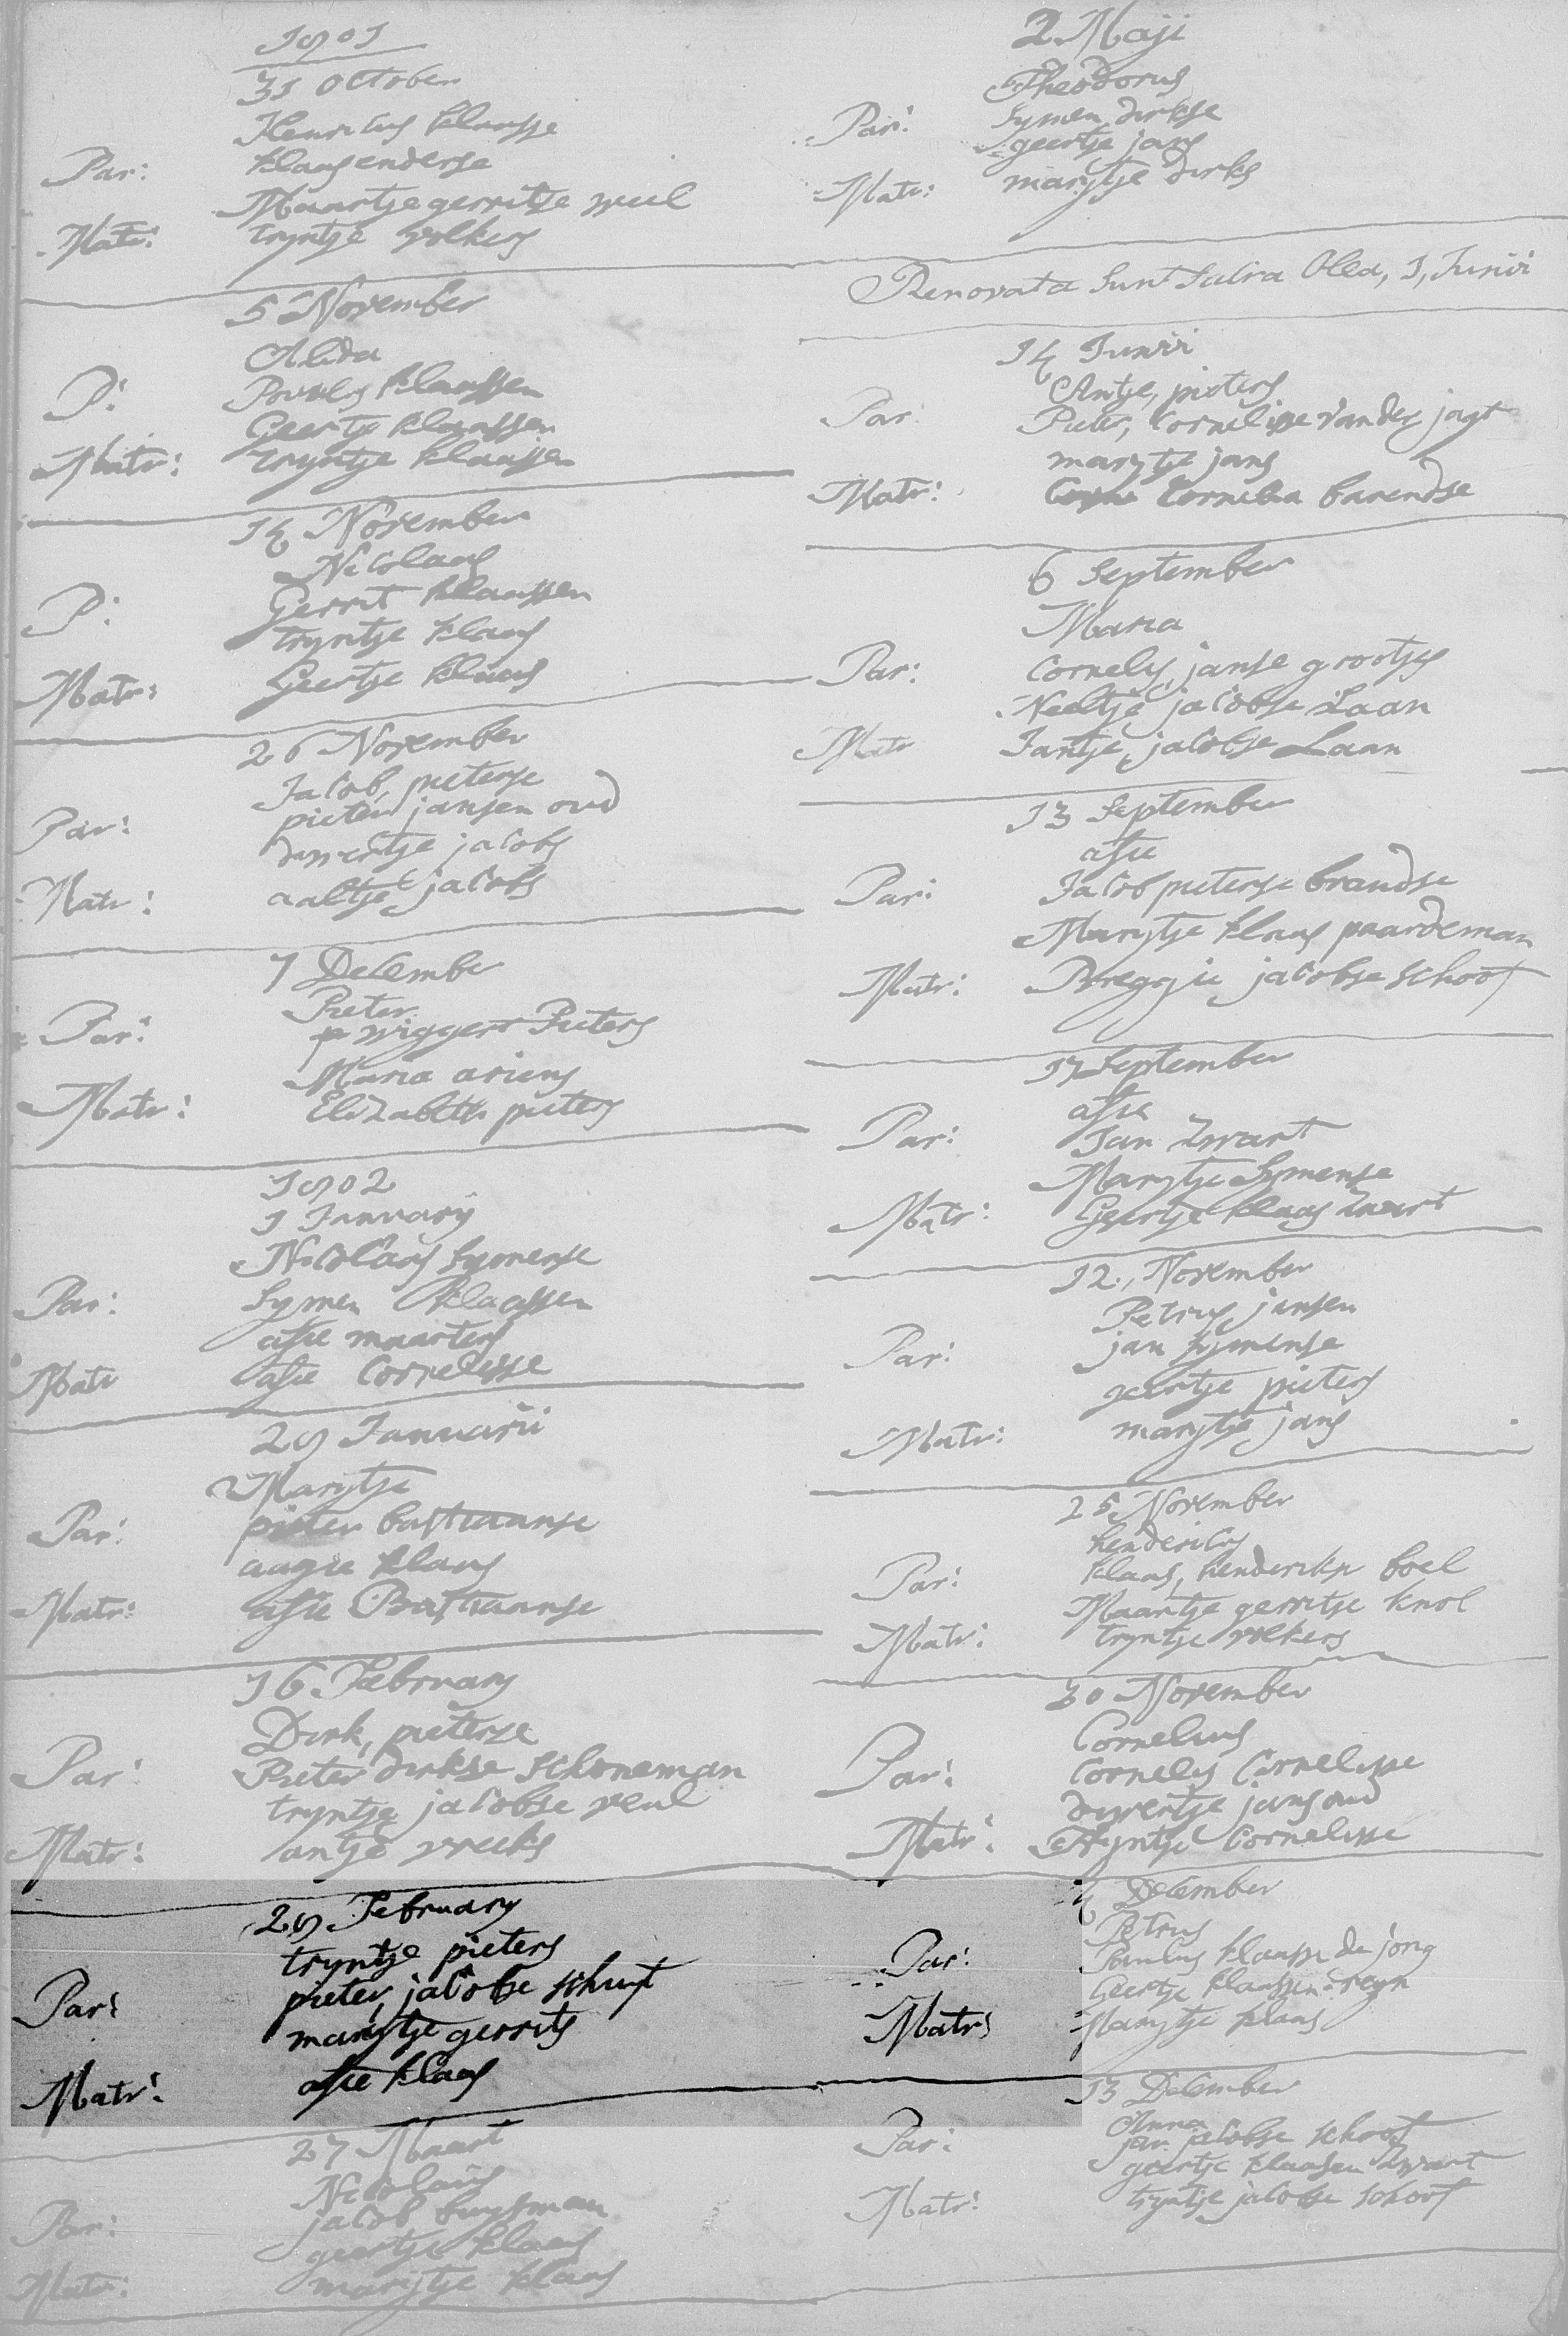 1701
31 October
Henricus klaasse
Par: klaas enderse
Maartje gerritse weel
Matr: tryntje volkers
5 November
Alida
P: Pouwes klaassen
Geertje klaassen
Matr: tryntje klaassen
14 November
Nicolaas
P: Gerrit klaassen
tryntje klaas
Matr: Geertje klaas
26 November
Jacob, pieterse
Par: pieter jansen oud
duwertje jacobs
Matr: aaltje jacobs
7 December
Pieter
Par: wiggert Pieters
Maria ariens
Matr: Elizabeth pieters
1702
1 January
Nicolaas symense
Par: Symen klaassen
afie maarters
Matr afie Cornelisse
29 Januarii
Marytje
Par: pieter bastiaanse
aagie klaas
Matr: afie Bastiaanse
16 February
Dirk, pieterse
Par: Pieter dirkse schoneman
tryntje jacobse veul
Matr: antje vreeks
29 February
tryntje pieters
Par: pieter, jacobse schuyt
marytje gerrits
Matr: afie klaas
27 Maart
Nicolaus
Par: jacob buysman
geertje klaas
Matr: marijtje klaas
2 Maji
Theodorus
Par: Symen dirkse
geertje jans
Matr: marijtje dirks
Renovata sunt sacra Olea, 1, Junii
14 Junii
Antje, pieters
Par: Pieter, Cornelisse van der jagt
marytje jans
Matr: Cornelia barendse
6 September
Maria
Par: Cornelis, janse grootjes
Neeltje jacobse Laan
Matr Jantje, jacobse Laan
13 September
afie
Par: Jacob pieterse brandse
Marijtje klaas paardeman
Matr: Breggie jacobse schoof
17 September
afie
Par: Jan Zwart
Marytje Symense
Matr: Geertje klaas Zwart
12, November
Petrus jansen
Par: jan symense
geertje pieters
Matr: marytje jans
25 November
hendericus
Par: klaas, henderikse boel
Maartje gerritse knol
Matr: tryntje volkers
30 November
Cornelius
Par: Cornelis Cornelisse
duwertje jans oud
Matr: Tryntje Cornelisse
4 December
Petrus
Par: Paulus klaasse de jong
Geertje klaassen reyn
Matr: Marytje klaas
13 December
Anna
Par: jan jacobse schoof
geertje klaasen Zwart
Matr: tryntje jacobse schoof